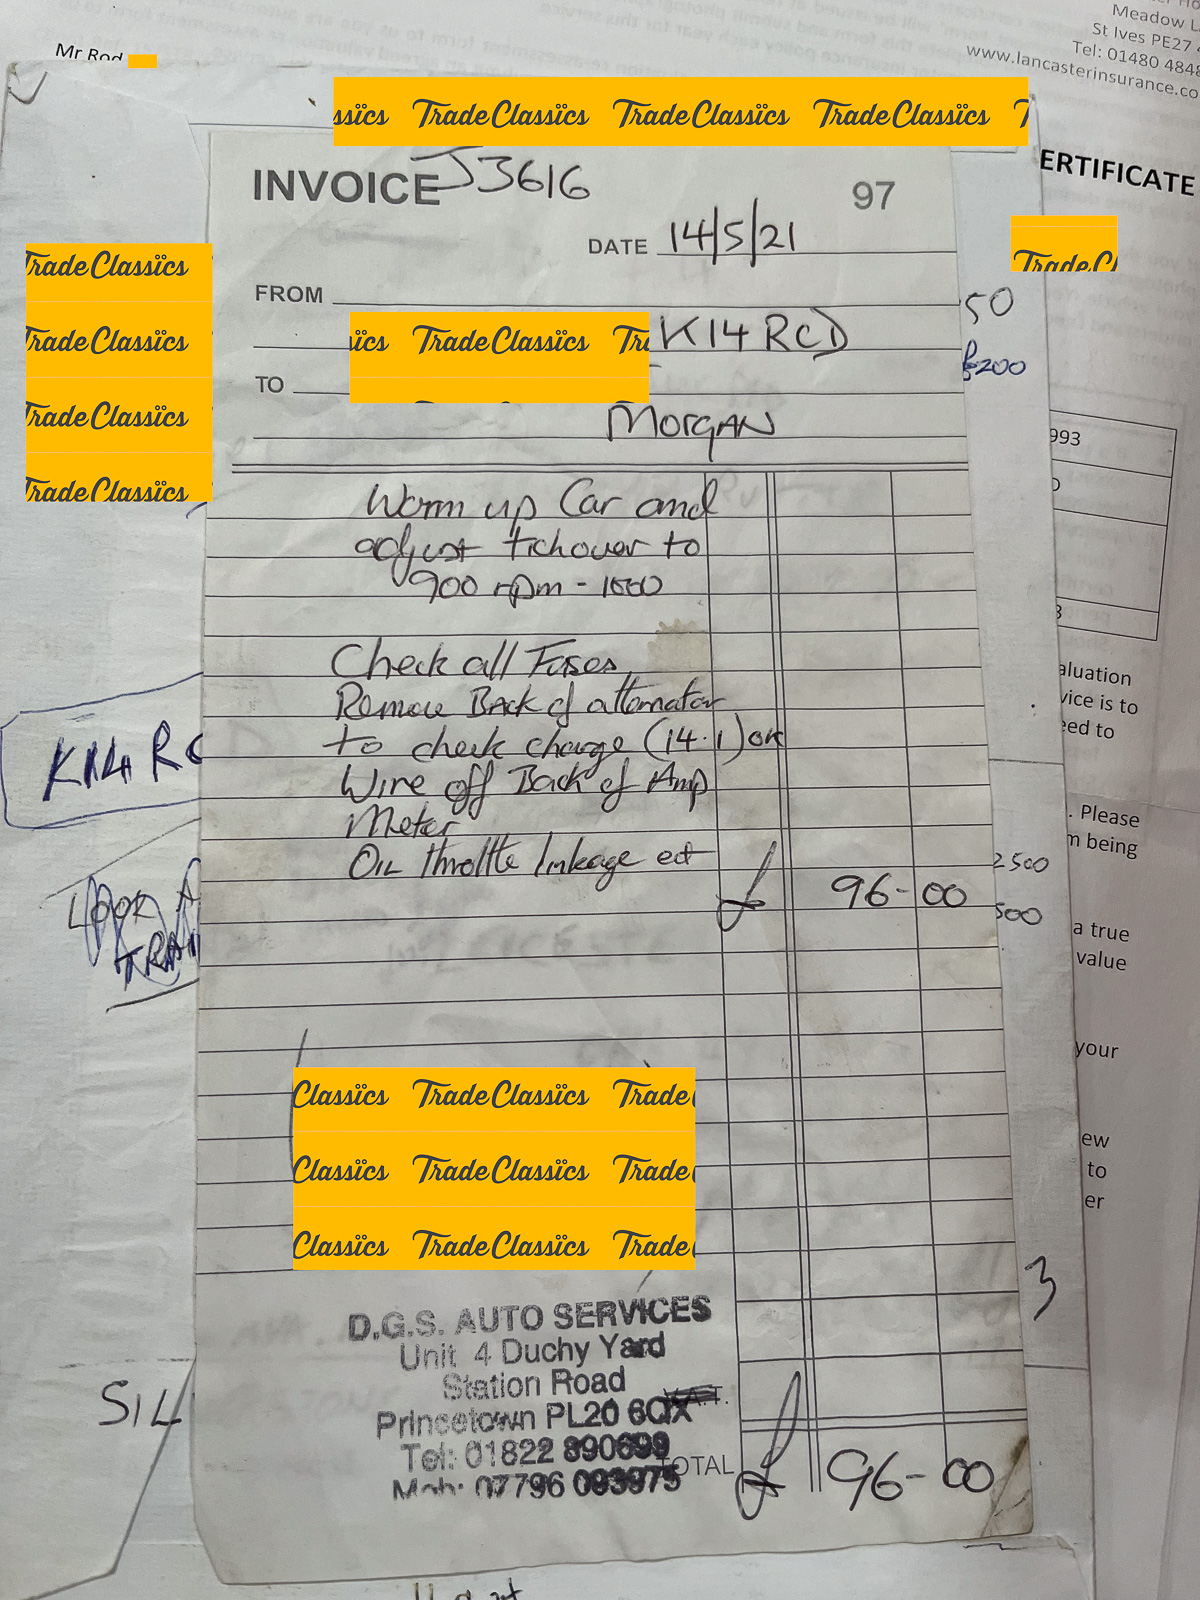 Mr Rod
Meadow L
St Ives PE27 4
Tel: 01480 4848
www.lancasterinsurance.co
ssics Trade Classics Trade Classics Trade Classics T
ERTIFICATE
INVOICE J3616 97
DATE 14/5/21
Trade Classics
Trade Classics
Trade Classics
Trade Classics
Trade Cl
FROM
50
ics Trade Classics Tra K14 RCD
£200
TO
MORGAN
993
Warm up Car and
adjust tickover to
900 rpm - 1000
Check all Fuses
Remove Back of alternator
to check charge (14.1) OK
Wire off Back of Amp
Meter
OIL throttle linkage ect
£ 96-00
K14 RC
LOOK A
TRAI
aluation
vice is to
eed to
. Please
m being
2500
500
a true
value
your
ew
to
er
3
Classics Trade Classics Trade
Classics Trade Classics Trade
Classics Trade Classics Trade
D.G.S. AUTO SERVICES
Unit 4 Duchy Yard
Station Road
Princetown PL20 6QX
V.A.T.
Tel: 01822 890699
Mob: 07796 093975
TOTAL £ 96-00
SIL